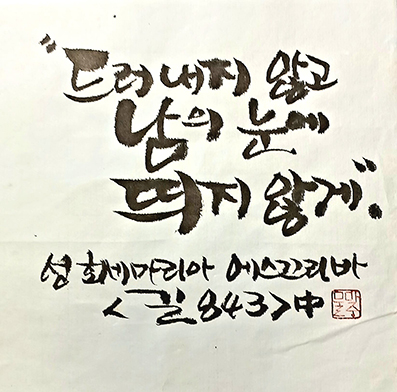 "드러내지 않고
남의 눈에
띄지 않게".
성 호세마리아 에스끄리바
<길 843>中